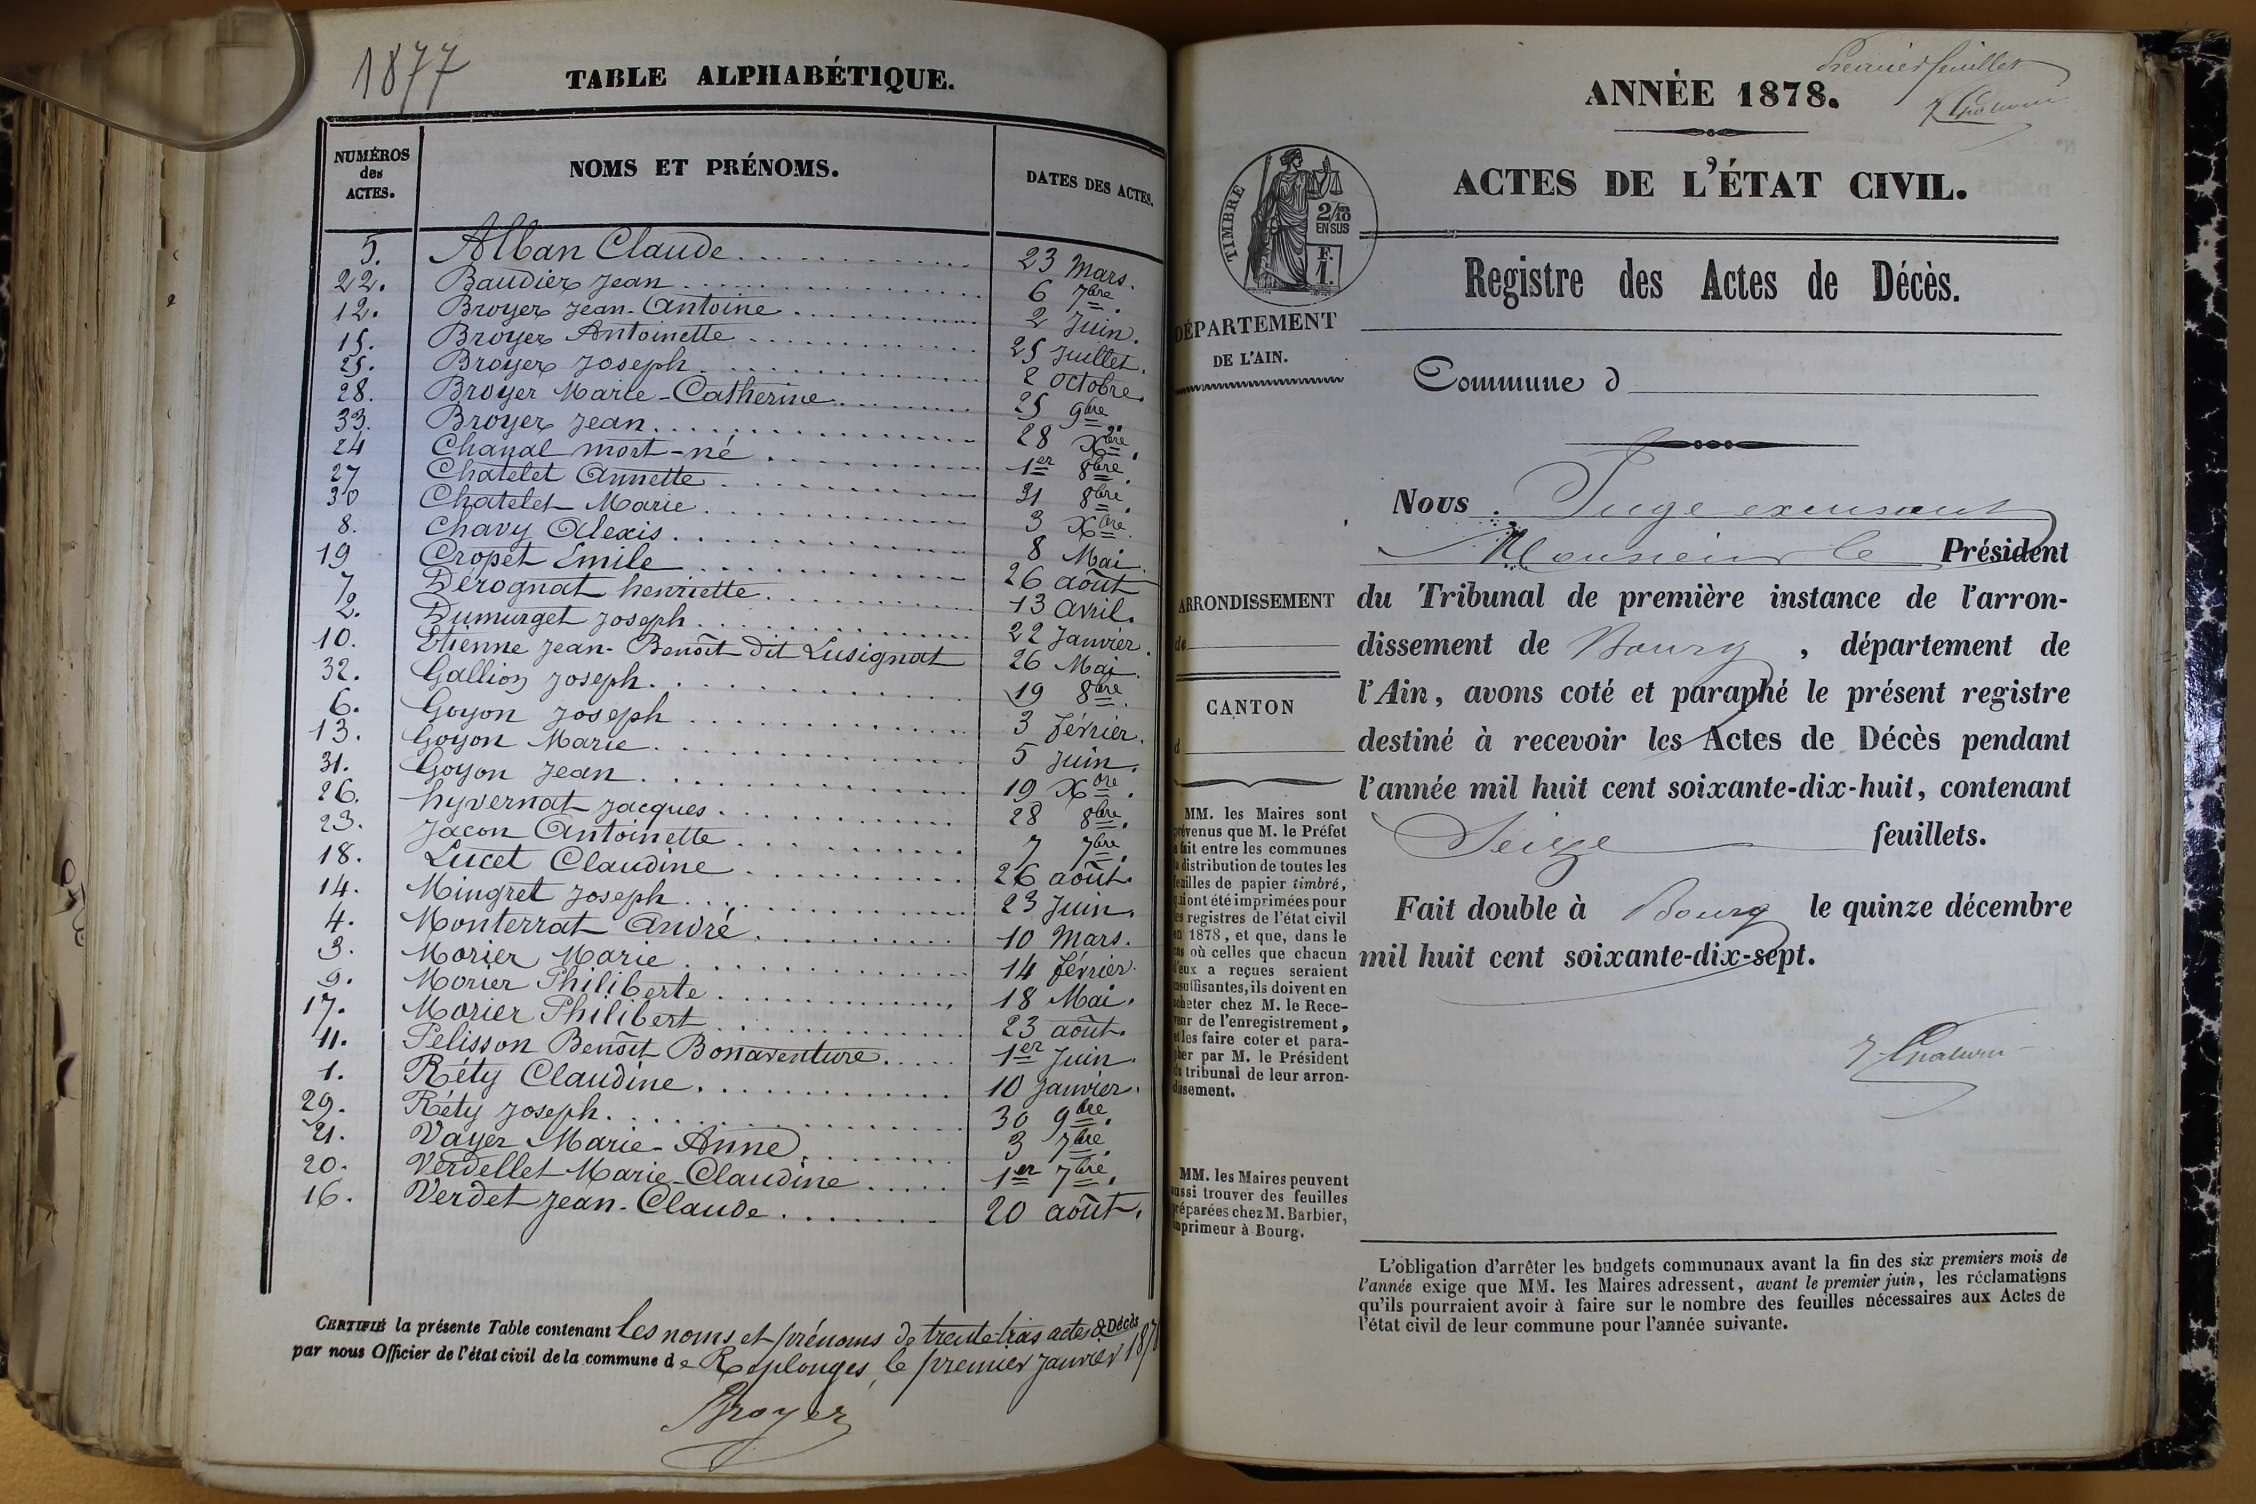 1877
TABLE ALPHABÉTIQUE.
NUMÉROS des ACTES.
NOMS ET PRÉNOMS.
DATES DES ACTES.
5. Alban Claude 23 Mars.
22. Baudier Jean 6 7bre.
12. Broyer Jean-Antoine 2 Juin.
15. Broyer Antoinette 25 Juillet.
25. Broyer Joseph 2 Octobre.
28. Broyer Marie-Catherine 25 9bre.
33. Broyer Jean 28 Xbre.
24 Chanal mort-né 1er 8bre.
27 Chatelet Annette 31 8bre.
30 Chatelet Marie 3 Xbre.
8. Chavy Alexis 8 Mai.
19 Cropet Emile 26 août
7. Dérognat henriette 13 avril.
2. Dumurget Joseph 22 Janvier.
10. Etienne Jean-Benoît dit Lusignat 26 Mai.
32. Gallion Joseph 19 8bre.
6. Goyon Joseph 3 février.
13. Goyon Marie 5 Juin.
31. Goyon Jean 19 Xbre.
26. hyvernat Jacques 28 8bre.
23. Jacon Antoinette 7 7bre.
18. Lucet Claudine 26 août.
14. Mingret Joseph 23 Juin.
4. Monterrat André 10 Mars.
3. Morier Marie 14 février.
9. Morier Philiberte 18 Mai.
17. Morier Philibert 23 août.
11. Pelisson Benoît Bonaventure 1er Juin.
1. Réty Claudine 10 Janvier.
29. Réty Joseph 30 9bre.
21. Vayer Marie-Anne 3 7bre.
20. Verdellet Marie-Claudine 1er 7bre.
16. Verdet Jean-Claude 20 août.
CERTIFIÉ la présente Table contenant les noms et prénoms de trente-trois actes de Décès
par nous Officier de l'état civil de la commune de Replonges, le premier Janvier 187
Broyer
Premier feuillet
ANNÉE 1878.
ACTES DE L'ÉTAT CIVIL.
TIMBRE
2/10 EN SUS
F. 1.
Registre des Actes de Décès.
DÉPARTEMENT
DE L'AIN.
Commune d
Nous Juge excusant
Monsieur le Président
du Tribunal de première instance de l'arron-
dissement de Bourg, département de
l'Ain, avons coté et paraphé le présent registre
destiné à recevoir les Actes de Décès pendant
l'année mil huit cent soixante-dix-huit, contenant
Seize feuillets.
Fait double à Bourg le quinze décembre
mil huit cent soixante-dix-sept.
ARRONDISSEMENT
de
CANTON
d
MM. les Maires sont
prévenus que M. le Préfet
a fait entre les communes
la distribution de toutes les
feuilles de papier timbré,
qui ont été imprimées pour
les registres de l'état civil
en 1878, et que, dans le
cas où celles que chacun
d'eux a reçues seraient
insuffisantes, ils doivent en
acheter chez M. le Rece-
veur de l'enregistrement,
et les faire coter et para-
pher par M. le Président
du tribunal de leur arron-
dissement.
MM. les Maires peuvent
aussi trouver des feuilles
préparées chez M. Barbier,
imprimeur à Bourg.
L'obligation d'arrêter les budgets communaux avant la fin des six premiers mois de
l'année exige que MM. les Maires adressent, avant le premier juin, les réclamations
qu'ils pourraient avoir à faire sur le nombre des feuilles nécessaires aux Actes de
l'état civil de leur commune pour l'année suivante.